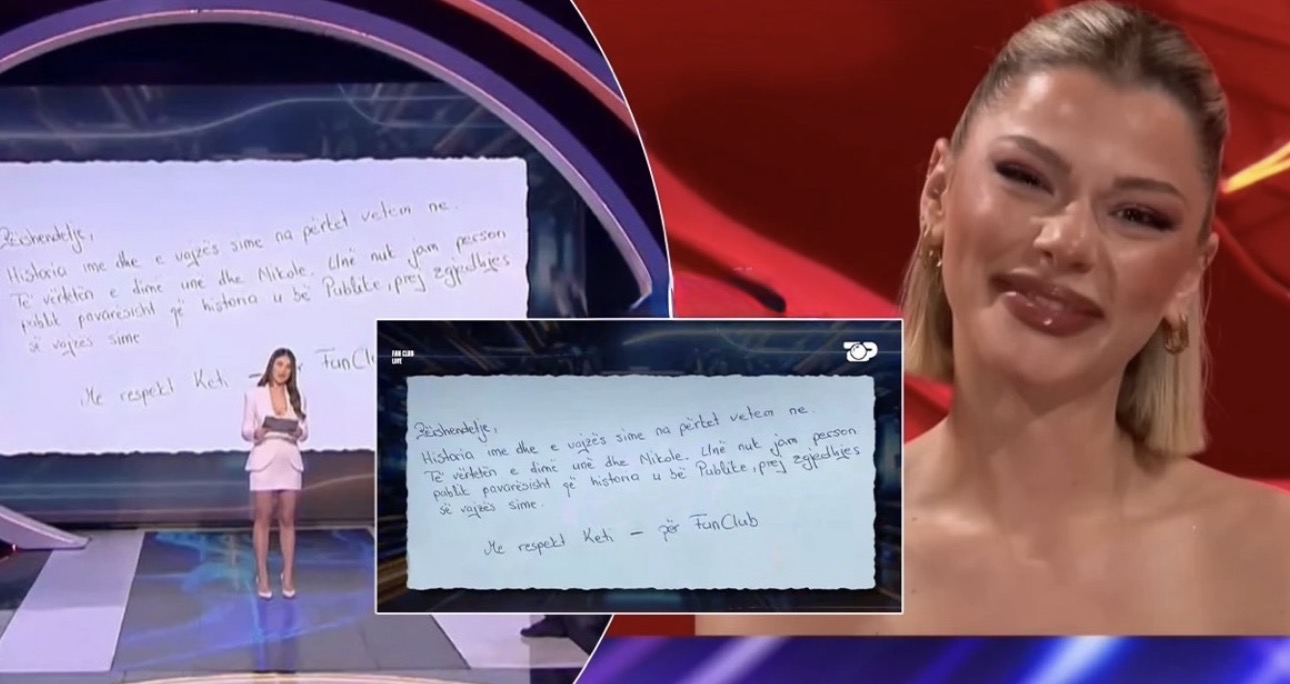 Përshendetje,
Historia ime dhe e vajzës sime na përket vetem ne.
Të vërtetën e dimë unë dhe Nikole. Unë nuk jam person
publik pavarësisht që historia u bë Publike, prej zgjedhjes
së vajzës sime
Me respekt Keti — r FanClu
FAN CLUB
LIVE
TOP
Përshendetje,
Historia ime dhe e vajzës sime na përket vetem ne.
Të vërtetën e dimë unë dhe Nikole. Unë nuk jam person
publik pavarësisht që historia u bë Publike, prej zgjedhjes
së vajzës sime.
Me respekt Keti — për FanClub